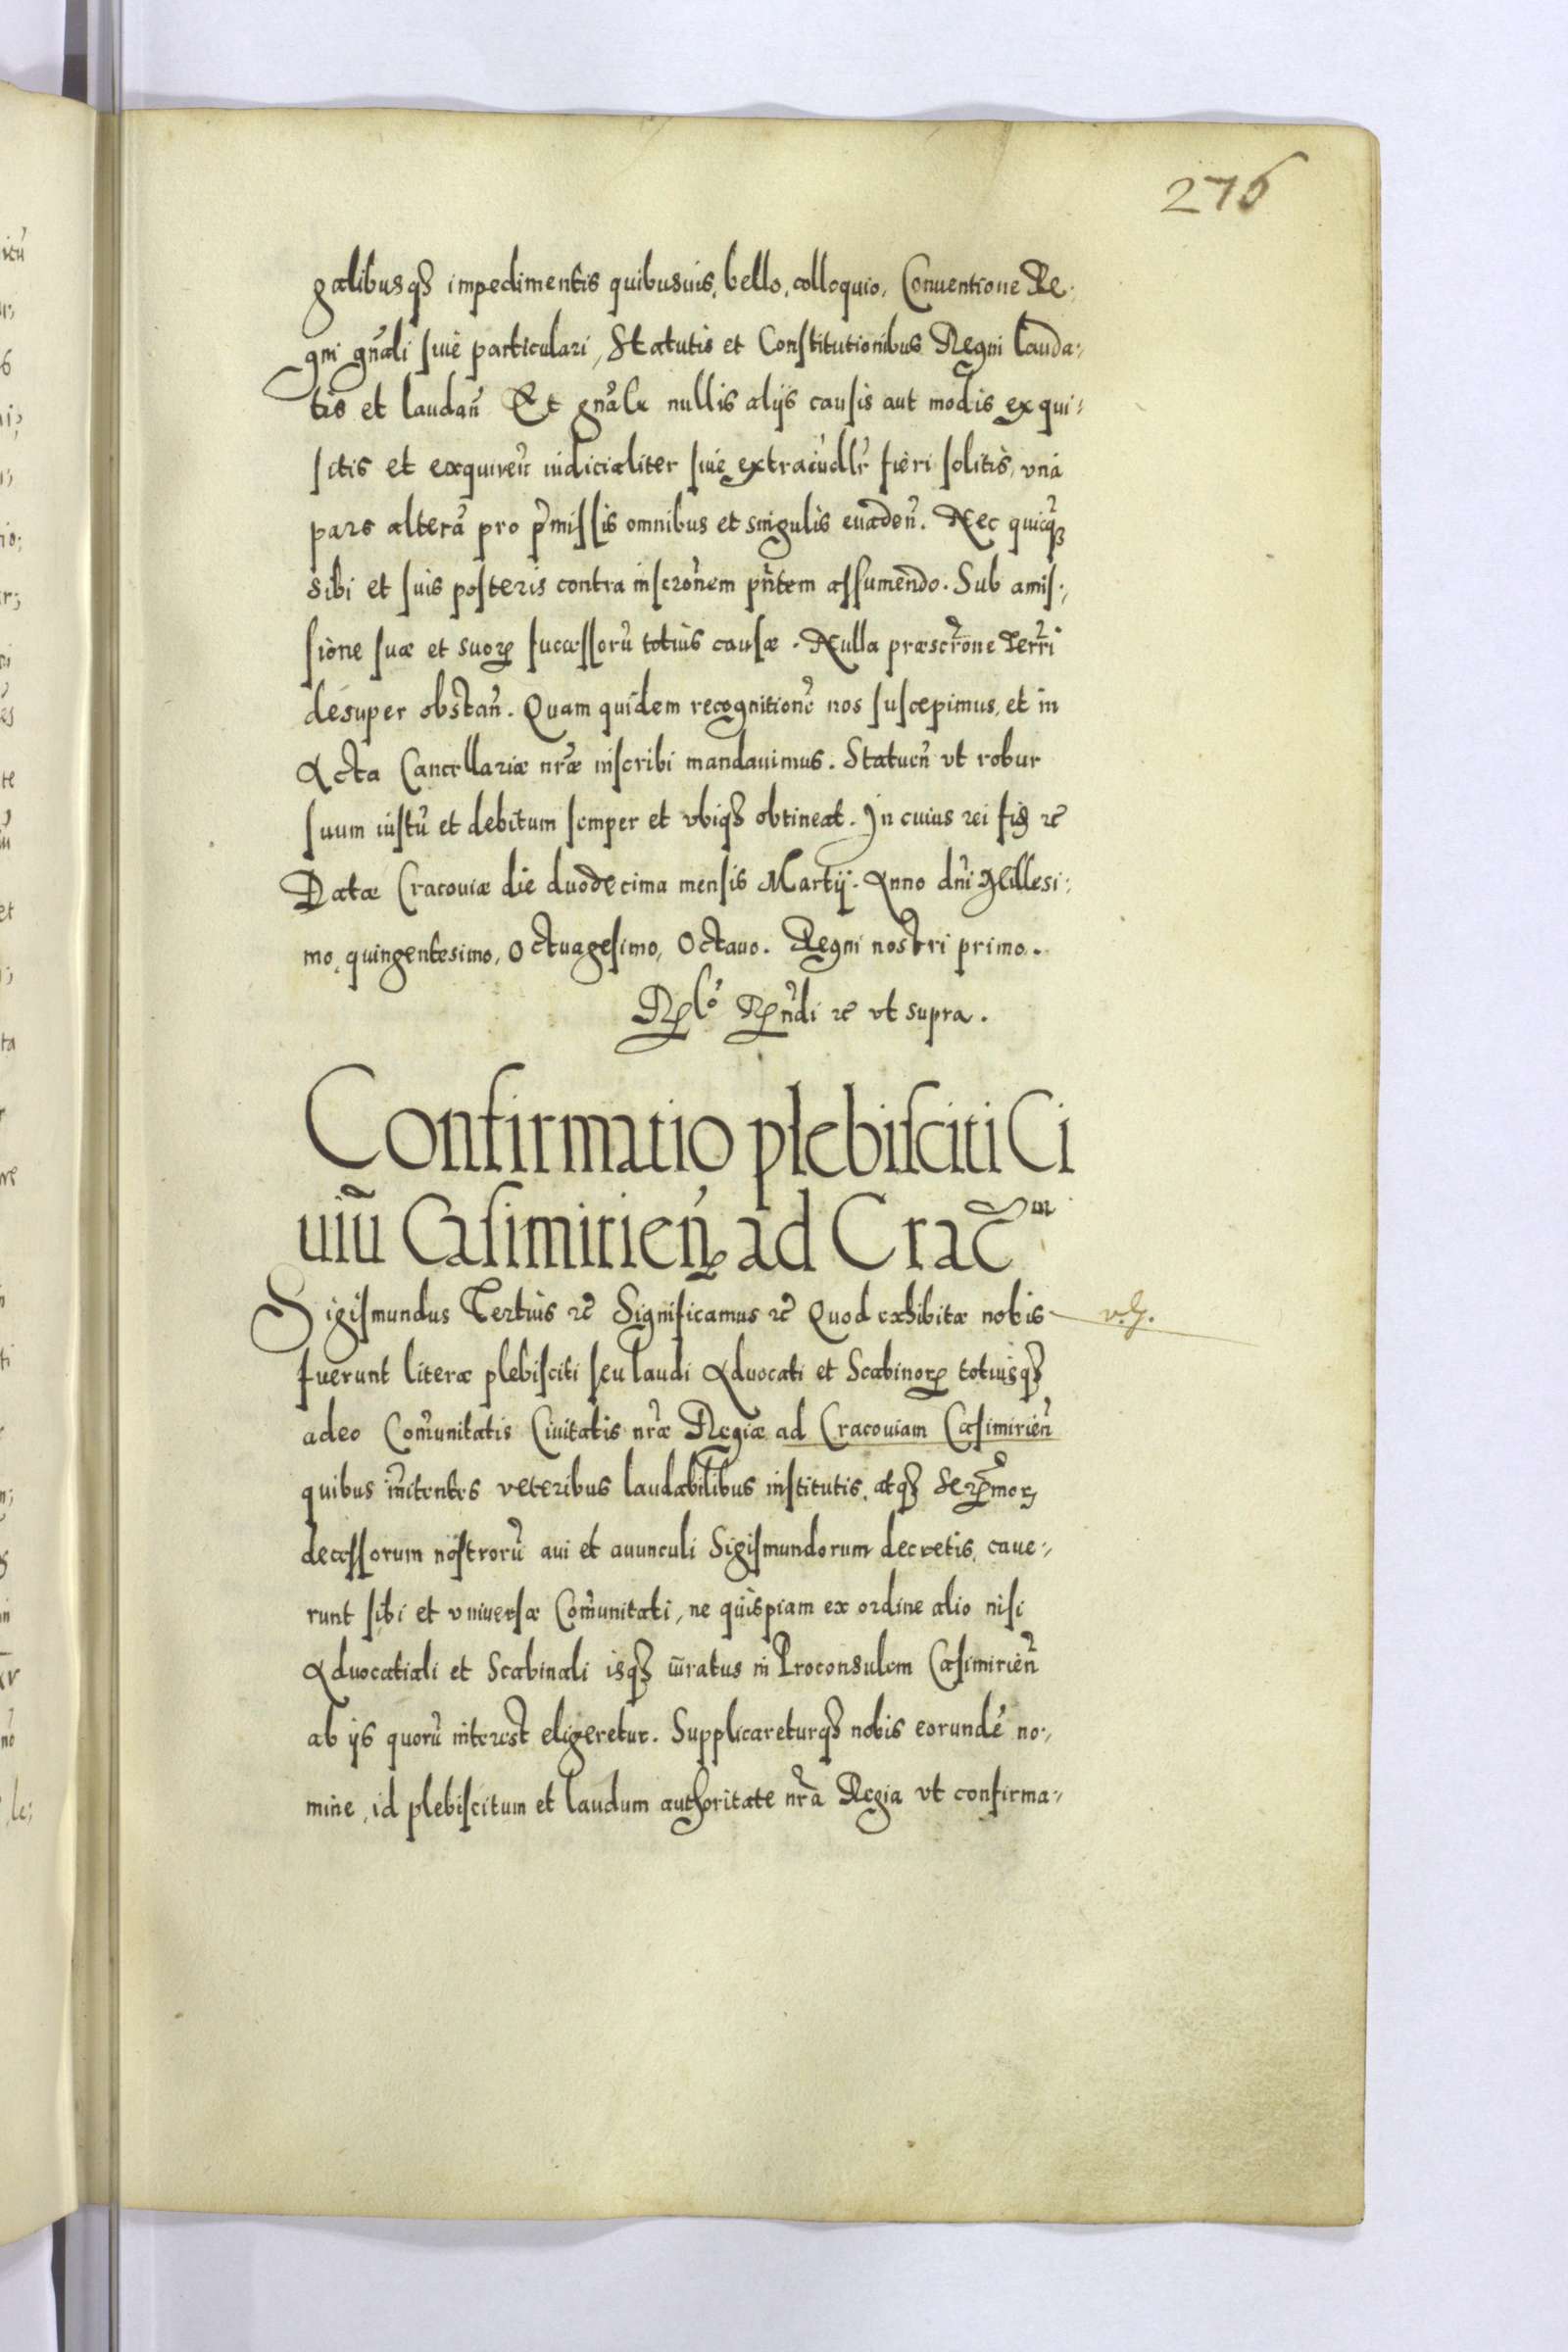 276
galibusq3 impedimentis quibusuis, bello, colloquio, Conuentione Re:
gni gn̄ali siue particulari, Statutis et Constitutionibus Regni lauda:
tis et laudan̄ Et gn̄aLr nullis alijs causis aut modis exqui:
sitis et exquiren̄ iudicialiter siue extraiudlr̄ fieri solitis, vna
pars alterā pro p̄missis omnibus et singulis euaden̄. Nec quicq̄3
sibi et suis posteris contra inscrōnem pn̄tem assumendo. Sub amis:
sione suæ et suoꝝ successorū totius causæ. Nulla præscr̄one Terrī
desuper obstan̄. Quam quidem recognitionē nos suscepimus, et in
Acta Cancellariæ nr̄æ inscribi mandauimus. Statuen̄ vt robur
suum iustū et debitum semper et vbiq3 obtineat. In cuius rei fiꝯ ꝛc̄
Datæ Cracouiæ die duodecima mensis Martij. Anno dn̄i Millesi:
mo, quingentesimo, Octuagesimo, Octauo. Regni nostri primo.
Rlō Rn̄di ꝛc̄ vt supra.
Confirmatio plebisciti Ci
uiū Casimirien̄ ad Crac̄m
Sigismundus Tertius ꝛc̄ Significamus ꝛc̄ Quod exhibitæ nobis
fuerunt literæ plebisciti seu laudi Aduocati et Scabinoꝝ totiusq3
adeo Com̄unitatis Ciuitatis nr̄æ Regiæ ad Cracouiam Casimirien̄
quibus in̄itentes veteribus laudabilibus institutis, atq3 Seꝝmoꝝ
decessorum nostrorū aui et auunculi Sigismundorum decretis, caue:
runt sibi et vniuersæ Com̄unitati, ne quispiam ex ordine alio nisi
Aduocatiali et Scabinali isq3 iuratus in Proconsulem Casimirien̄
ab ijs quorū interest eligeretur. Supplicareturq3 nobis eorundē no:
mine, id plebiscitum et laudum authoritate nr̄a Regia vt confirma: